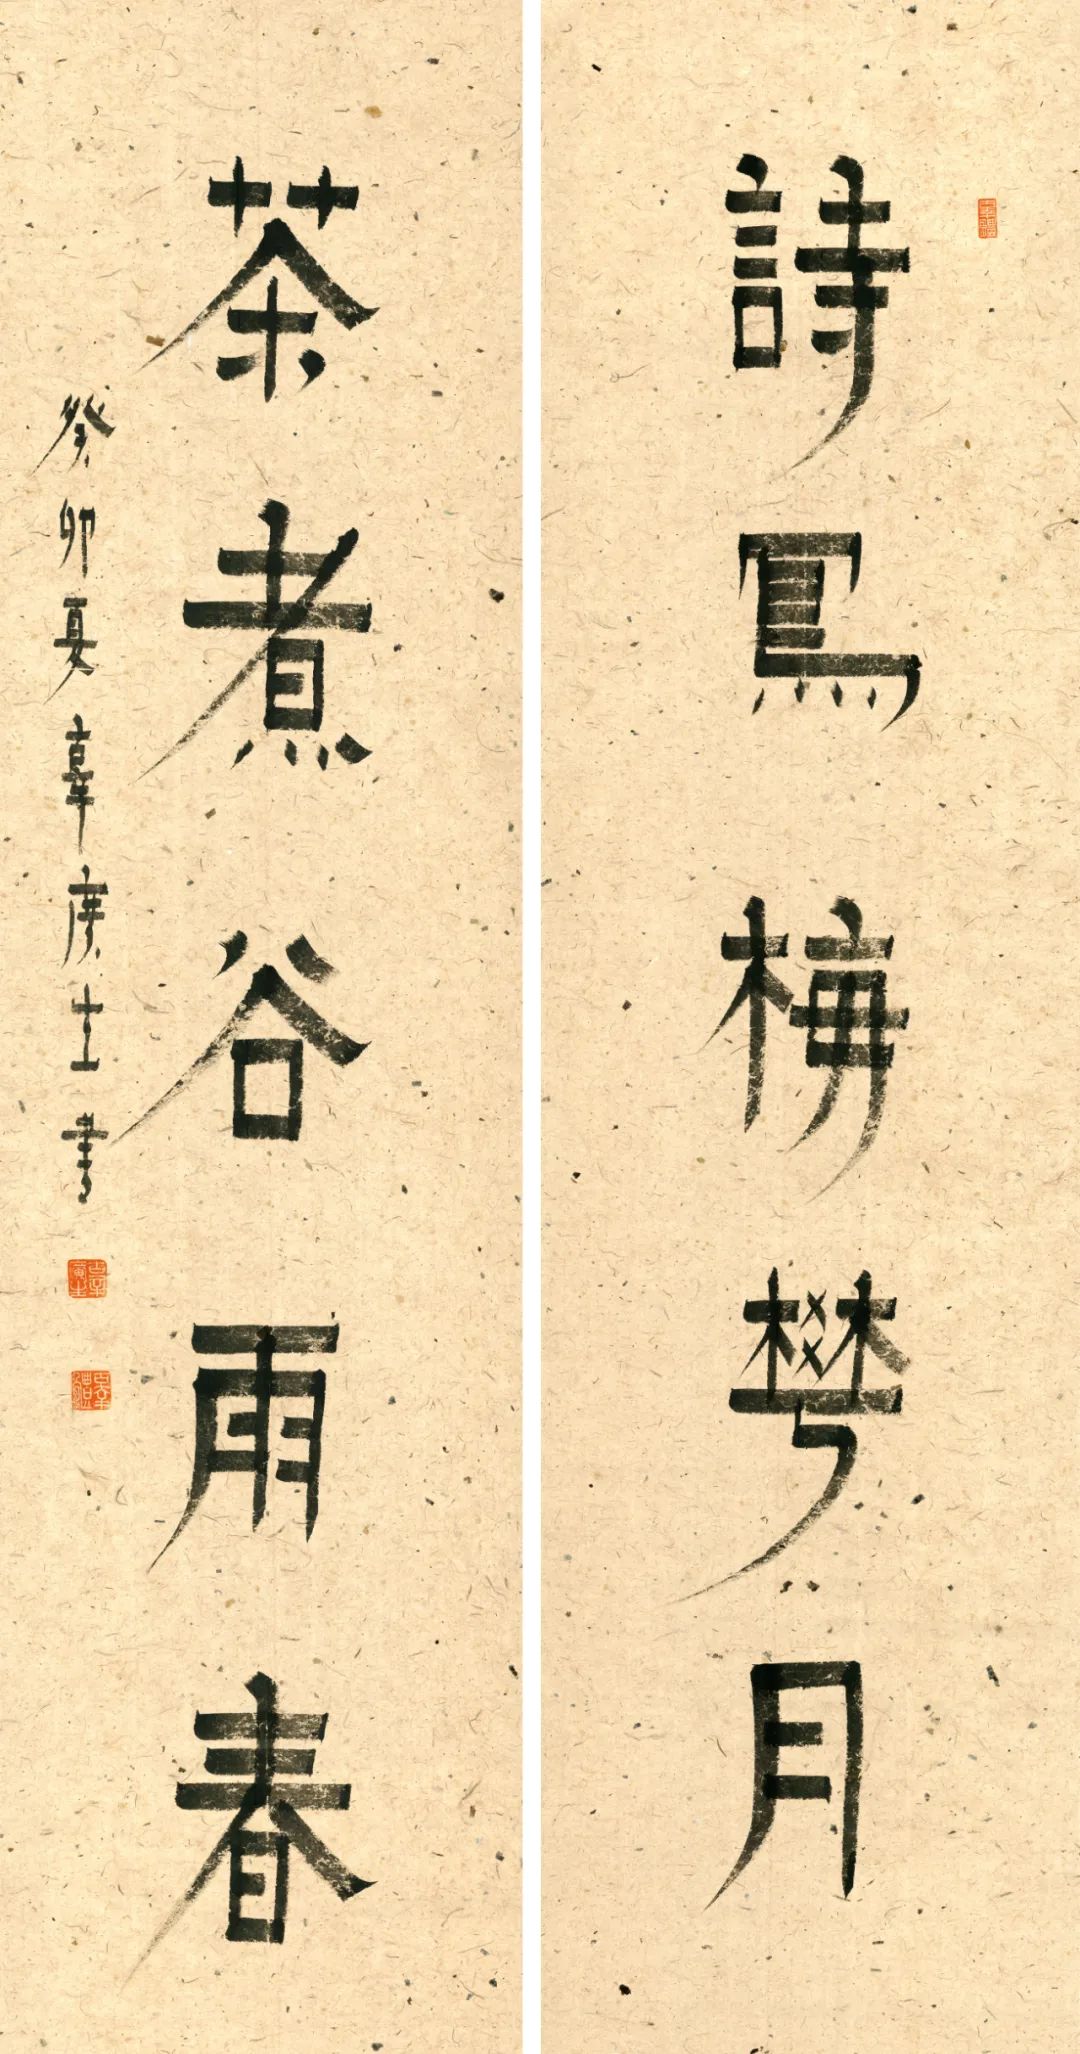 詩寫梅花月
茶煮谷雨春
癸卯夏辜庚士書